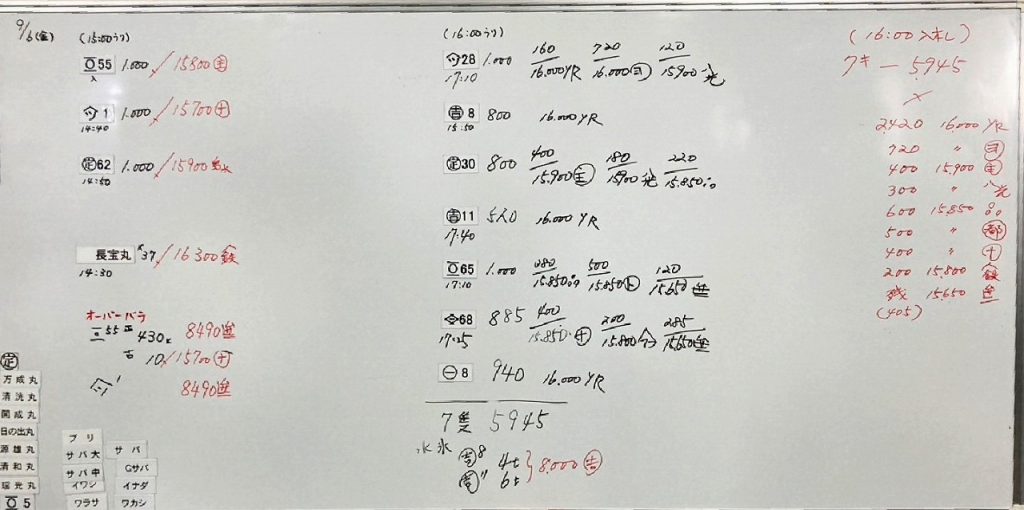 9/6(金)
(15:00うり)
55 1.000 / 15800 主
1 1.000 / 15700 十
14:40
定62 1.000 / 15900
14:50
長宝丸 37 / 16300 鉄
14:30
オーバーバラ
55 430K 8490
10 / 15700 十
8490
定
万成丸
清洸丸
開成丸
日の出丸
源雄丸
清和丸
瑞光丸
5
ブリ
サバ大
サバ中
イワシ
ワラサ
サバ
Gサバ
イナダ
ワカシ
(16:00うり)
28 1.000 160 16.000YR 720 16.000ヨ 120 15900
17:10
吉8 800 16.000YR
15:50
定30 800 400 15.900主 180 15900 220 15.850
吉11 520 16.000YR
17:40
65 1.000 280 15.850 500 15.850 120 15650
17:10
68 885 400 15.850十 200 15.800 285 15650
17:25
一8 940 16.000YR
7隻 5945
水氷 吉8 4t
吉11 6t
8.000吉
(16:00入札)
7キ — 5945
2420 16.000 YR
720 〃 ヨ
400 15.900 主
300 〃
600 15.850
500 〃 都
400 〃 十
200 15.800 鉄
残 15650
(405)